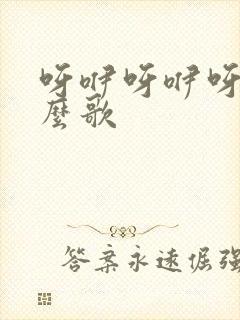 呀咿呀咿呀
麼歌
答案永遠倔强